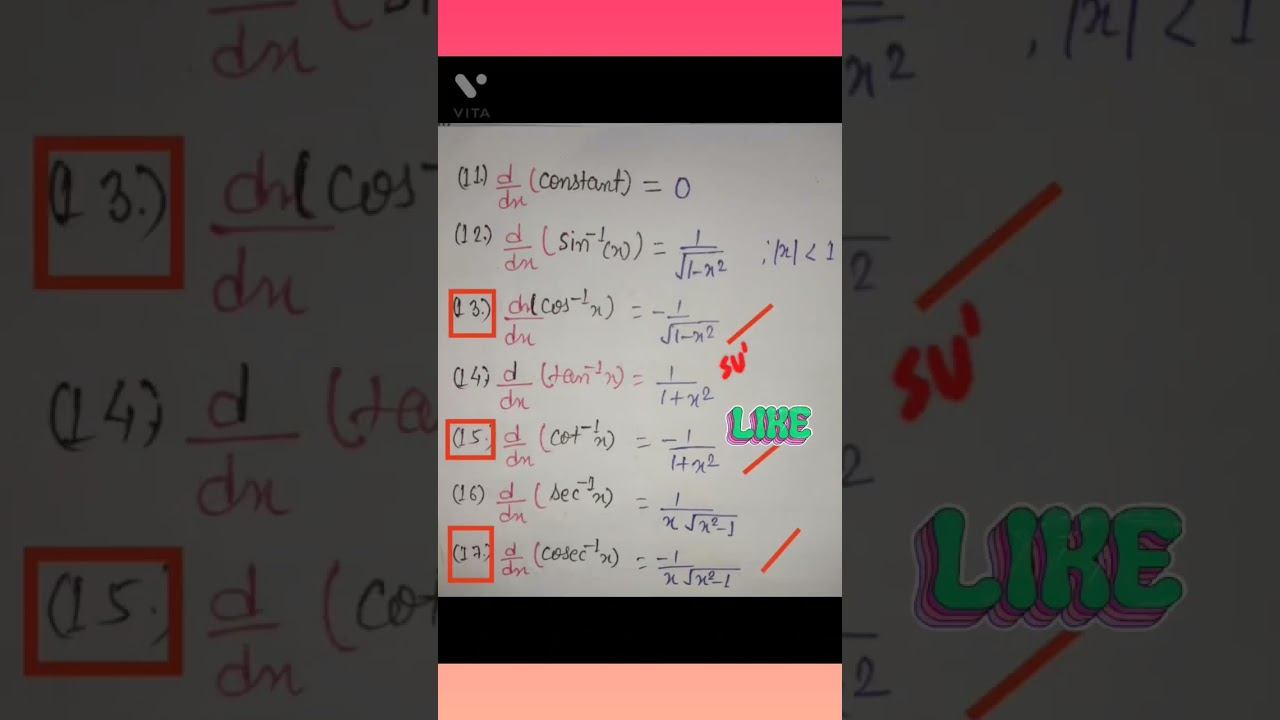 VITA
(11.) d/dx (constant) = 0
(12.) d/dx (sin⁻¹(x)) = 1/√1-x² ; |x| < 1
(13.) dx/dx (cos⁻¹x) = -1/√1-x²
(14.) d/dx (tan⁻¹x) = 1/1+x²
(15.) d/dx (cot⁻¹x) = -1/1+x²
LIKE
(16) d/dx (sec⁻¹x) = 1/x√x²-1
(17.) d/dx (cosec⁻¹x) = -1/x√x²-1